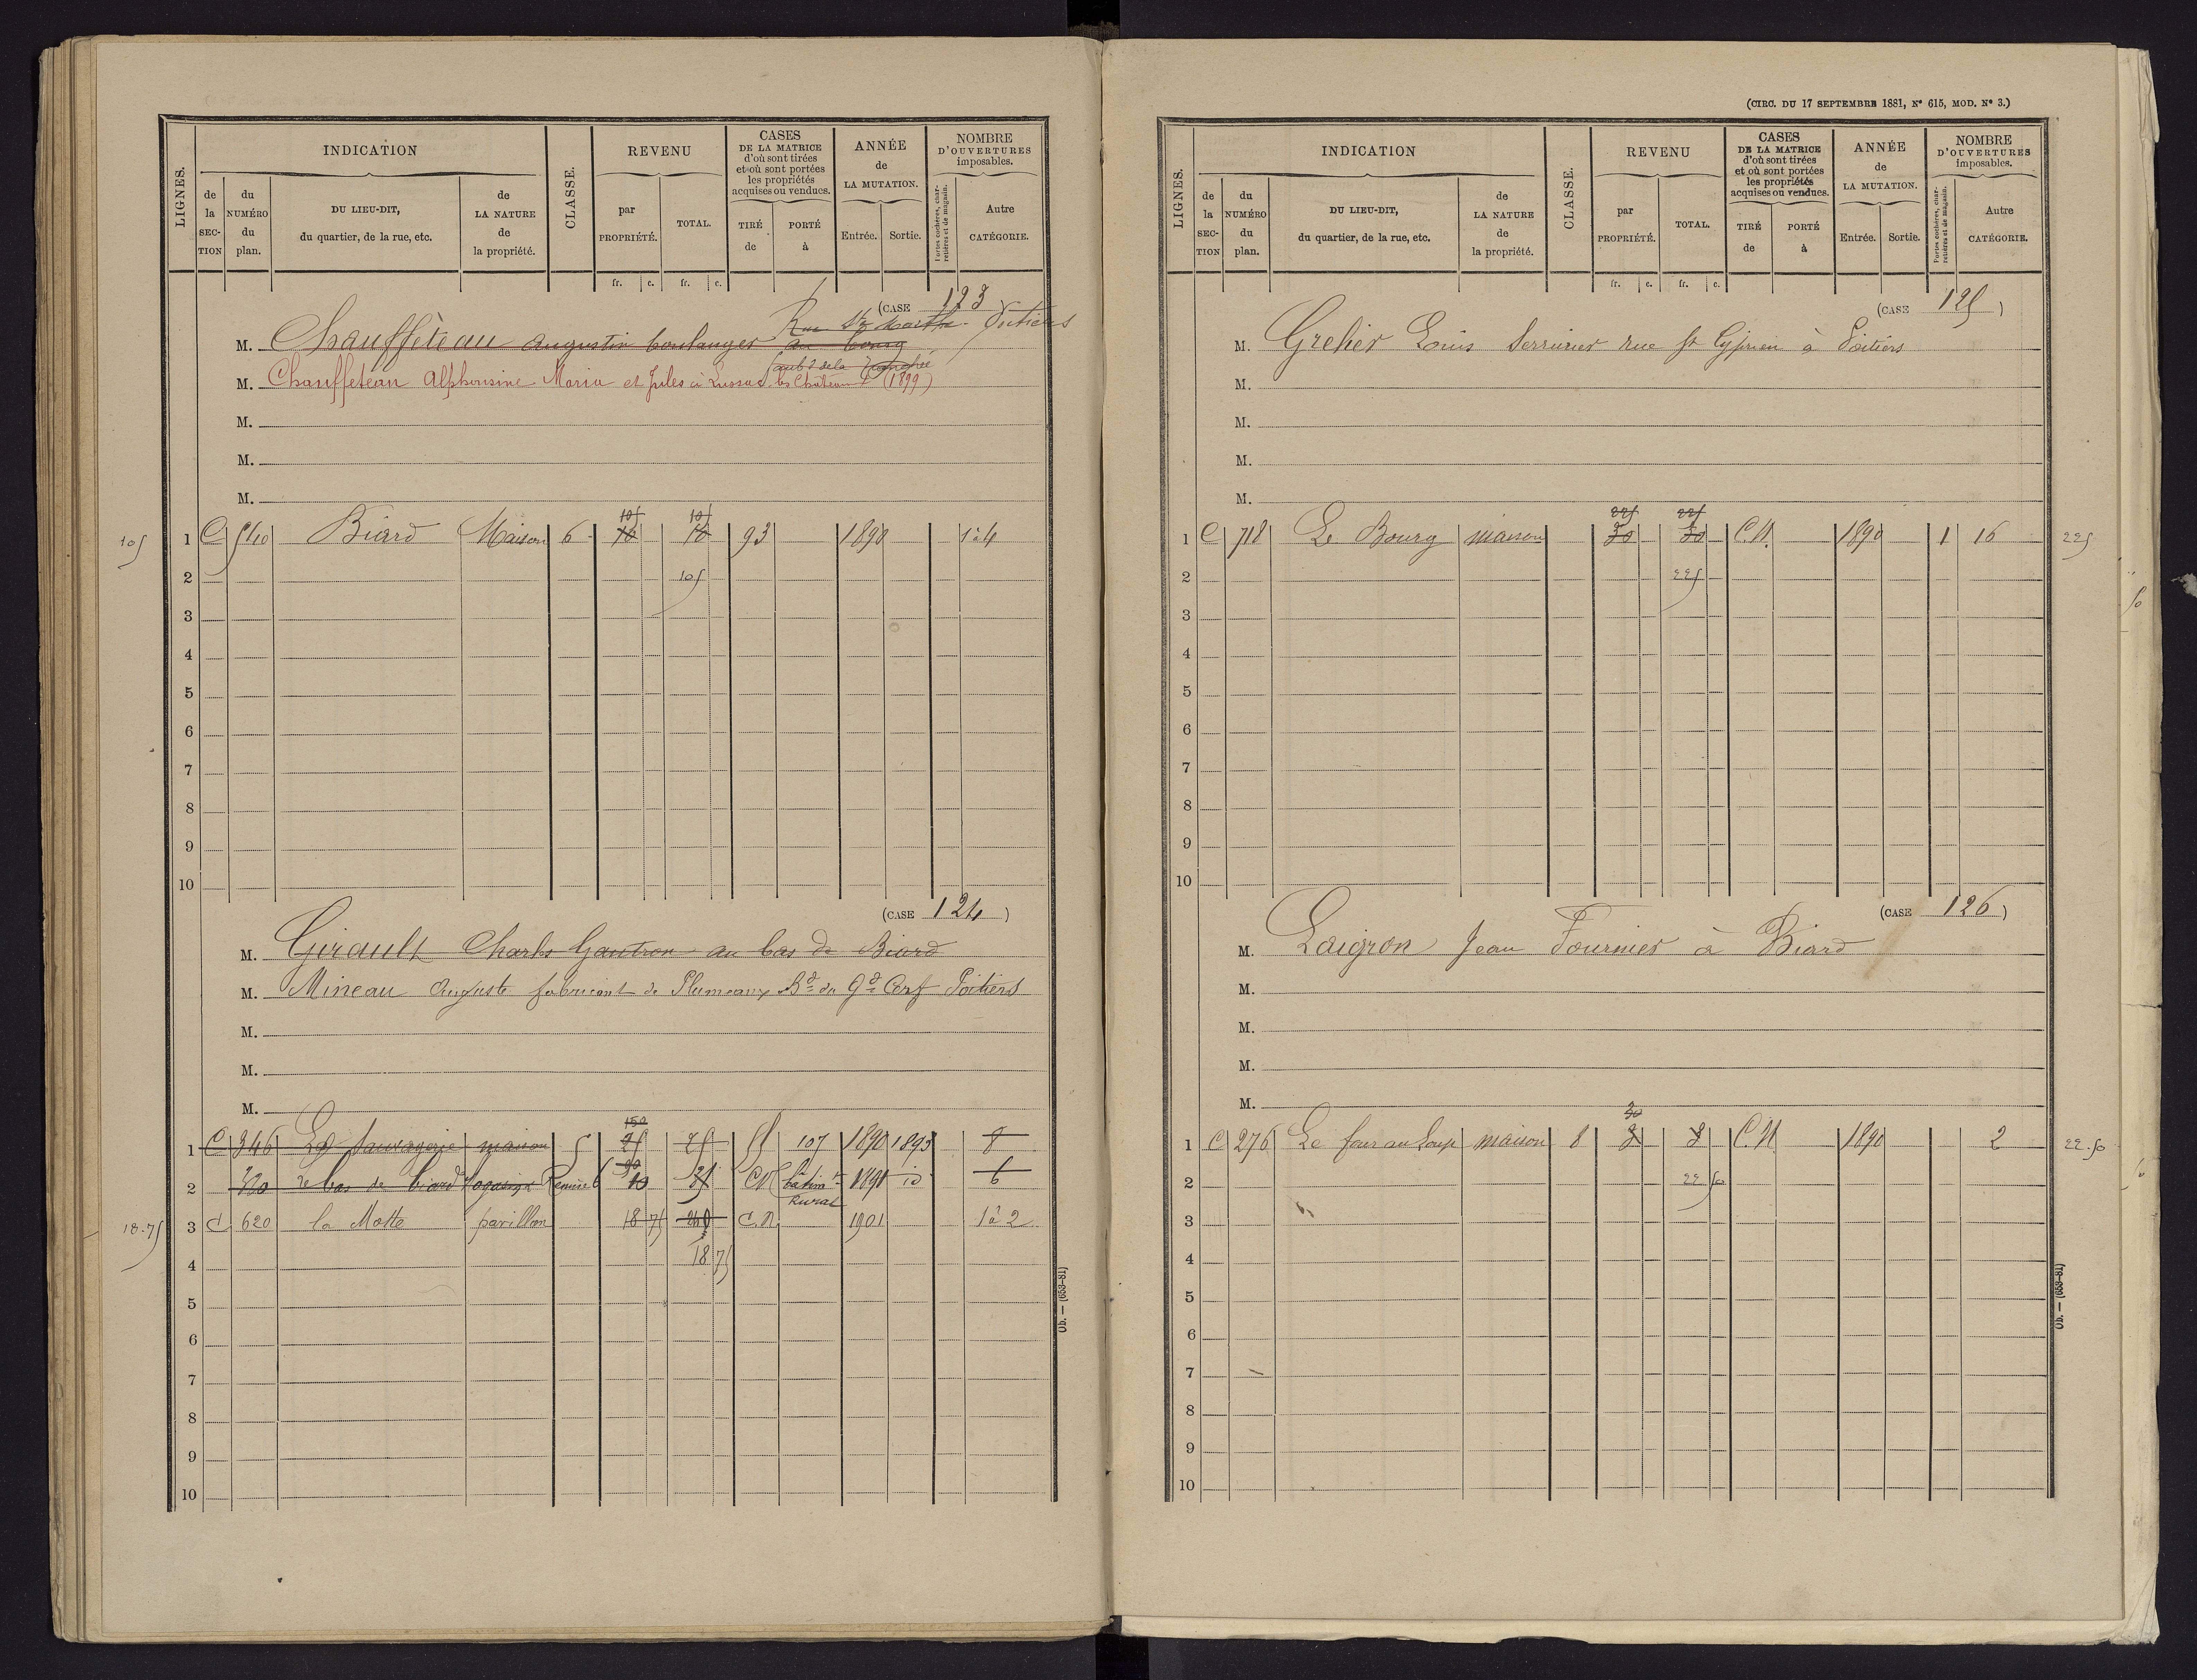 LIGNES.
INDICATION
de la SECTION
du NUMÉRO du plan.
DU LIEU-DIT, du quartier, de la rue, etc.
de LA NATURE de la propriété.
CLASSE.
REVENU
par PROPRIÉTÉ.
TOTAL.
fr. c. fr. c.
CASES DE LA MATRICE d'où sont tirées et où sont portées les propriétés acquises ou vendues.
TIRÉ de
PORTÉ à
ANNÉE de LA MUTATION.
Entrée. Sortie.
NOMBRE D'OUVERTURES imposables.
Portes cochères, charretières et de magasin.
Autre CATÉGORIE.
(CASE 123
Rue Ste Marthe Poitiers
M. Chauffeteau Augustin boulanger au bourg
faub g de la Tranchée
M. Chauffeteau Alphonsine Maria et Jules à Lussac les Châteaux (1899)
M.
M.
M.
105 105
105 1 C 540 Biard Maison 6 93 1890 1 à 4
2 105
3
4
5
6
7
8
9
10
(CASE 124)
M. Girault Charles Gautron au bas de Biard
M. Mineau Auguste fabricant de Plumeaux Bd du Gd Cerf Poitiers
M.
M.
M.
150
1 C 346 La Sauvagerie maison 5 25 25 55 107 1890 1893 8
90
2 le bas de biard Magasin Remise 6 10 35 CN bâtimt Rural 1891 id 6
18.75 3 C 620 la Motte pavillon 18 75 C.N. 1901 1 à 2
4 18 75
5
6
7
8
9
10
Ob. — (653-81)
(CIRC. DU 17 SEPTEMBRE 1881, N° 615, MOD. N° 3.)
LIGNES.
INDICATION
de la SECTION
du NUMÉRO du plan.
DU LIEU-DIT, du quartier, de la rue, etc.
de LA NATURE de la propriété.
CLASSE.
REVENU
par PROPRIÉTÉ.
TOTAL.
fr. c. fr. c.
CASES DE LA MATRICE d'où sont tirées et où sont portées les propriétés acquises ou vendues.
TIRÉ de
PORTÉ à
ANNÉE de LA MUTATION.
Entrée. Sortie.
NOMBRE D'OUVERTURES imposables.
Portes cochères, charretières et de magasin.
Autre CATÉGORIE.
(CASE 125)
M. Grelier Louis Serrurier rue St Cyprien à Poitiers
M.
M.
M.
M.
225 225
1 C 718 Le Bourg maison 30 30 C.N. 1890 1 16 225
2 225
3
4
5
6
7
8
9
10
(CASE 126)
M. Laigron Jean Fournier à Biard
M.
M.
M.
M.
30
1 C 276 Le four au loup maison 8 C.N. 1890 2 22.50
2 22 50
3
4
5
6
7
8
9
10
Ob. — (653-81)